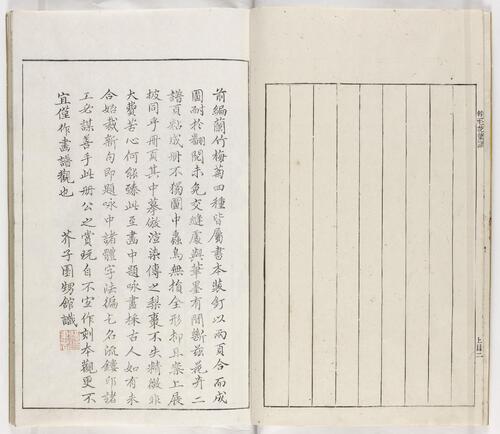 前編蘭竹梅菊四種皆屬書本裝釘以兩頁合而成
圖耐於翻閱未免交縫處與筆墨有間斷茲花卉二
譜頁粘成冊不獨圖中蟲鳥無損全形却且案上展
披同乎冊頁其中摹倣渲染傳之梨棗不失精微非
大費苦心何能臻此至畫中題咏畫採古人如有未
合始裁新句即題咏中諸體字法徧乞名流鏤印諸
工必謀善手此冊公之賞玩自不宜作刻本觀更不
宜僅作畫譜觀也
芥子園甥館識
上目二